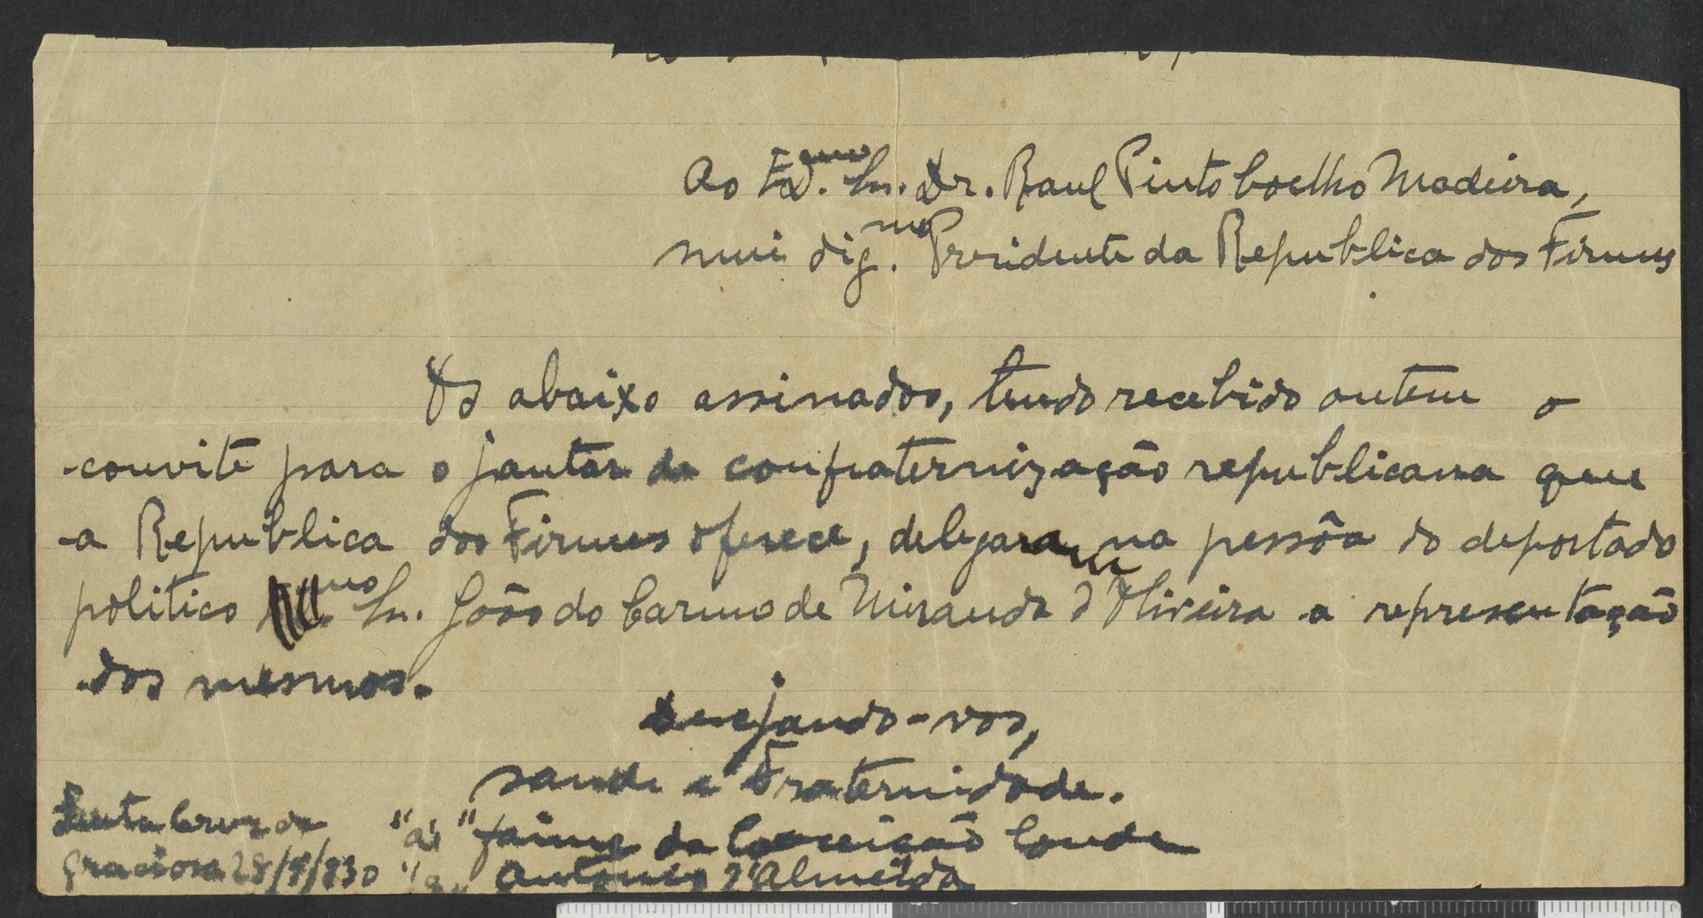 Ao Ex.mo Sn. Dr. Raul Pinto Coelho Madeira,
mui dig.mo Presidente da Republica dos Firmes
Os abaixo assinados, tendo recebido ontem o
convite para o jantar de confraternização republicana que
a Republica dos Firmes oferece, delegaram na pessôa do deportado
politico Sn. João do Carmo de Miranda d'Oliveira a representação
dos mesmos.
Desejando-vos,
saude e Fraternidade.
Santa Cruz da "a" Jaime da Conceição Conde
Graciosa 28/9/930 "a" Antonio d'Almeida